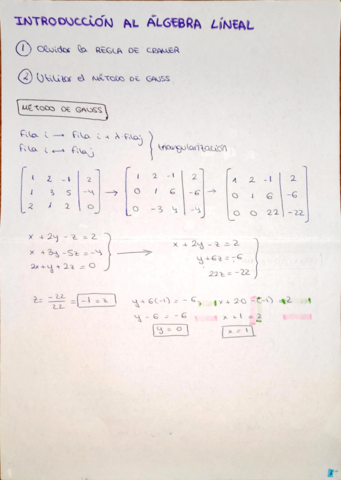 INTRODUCCIÓN AL ÁLGEBRA LINEAL
① Olvidar la REGLA DE CRAMER
② Utilizar el MÉTODO DE GAUSS
MÉTODO DE GAUSS
Fila i → Fila i + λ·Fila j
Fila i ↔ Fila j } triangularización
[1 2 -1 | 2] [1 2 -1 | 2] [1 2 -1 | 2]
[1 3 5 | -4] → [0 1 6 | -6] → [0 1 6 | -6]
[2 1 2 | 0] [0 -3 4 | -4] [0 0 22 | -22]
x + 2y - z = 2 x + 2y - z = 2
x + 3y - 5z = -4 → y + 6z = -6
2x + y + 2z = 0 22z = -22
z = -22/22 = -1 = z y + 6(-1) = -6 x + 2·0 - (-1) = 2
y - 6 = -6 x + 1 = 2
y = 0 x = 1